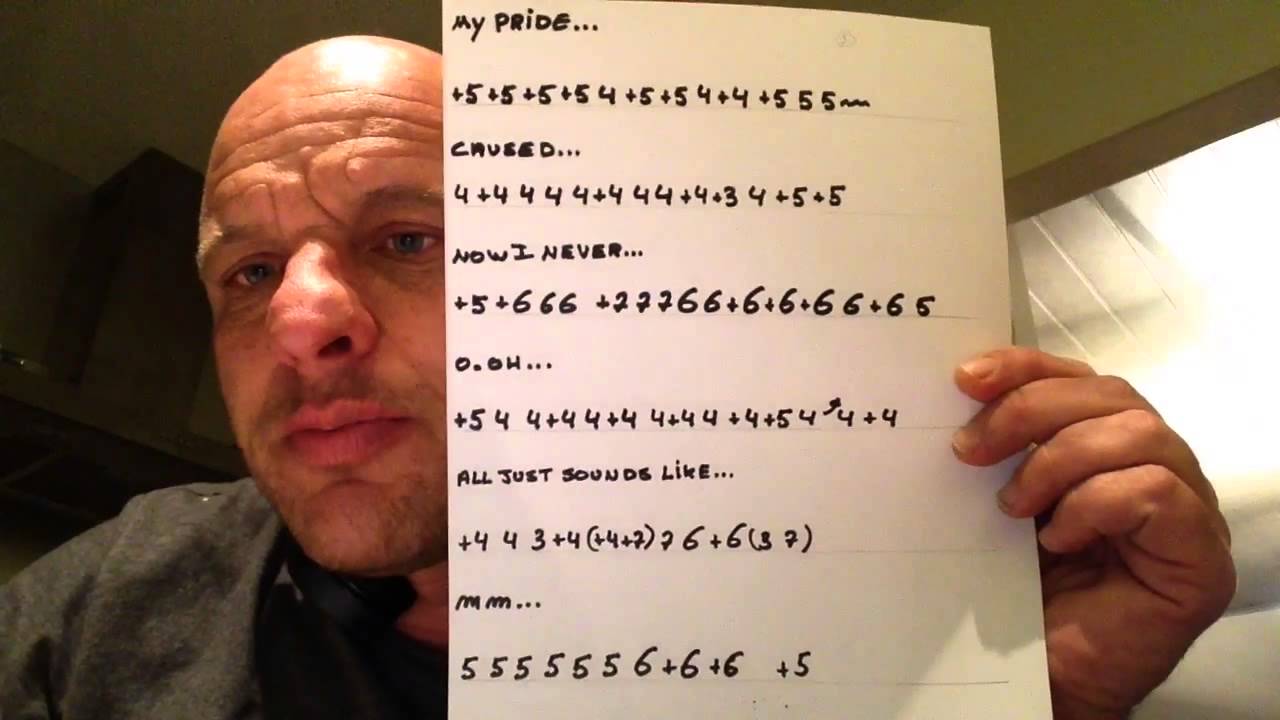 My PRIDE...
+5+5+5+5 4 +5+5 4+4 +5 5 5~
CAUSED...
4 +4 4 4 4+4 4 4+4+3 4 +5+5
NOW I NEVER...
+5+6 6 6 +7 7 7 6 6+6+6+6 6+6 5
O.OH...
+5 4 4+4 4+4 4+4 4 +4+5 4 ↗4 +4
ALL JUST SOUNDS LIKE...
+4 4 3+4(+4+7) 7 6+6(3 7)
mm...
5 5 5 5 5 5 6+6+6 +5